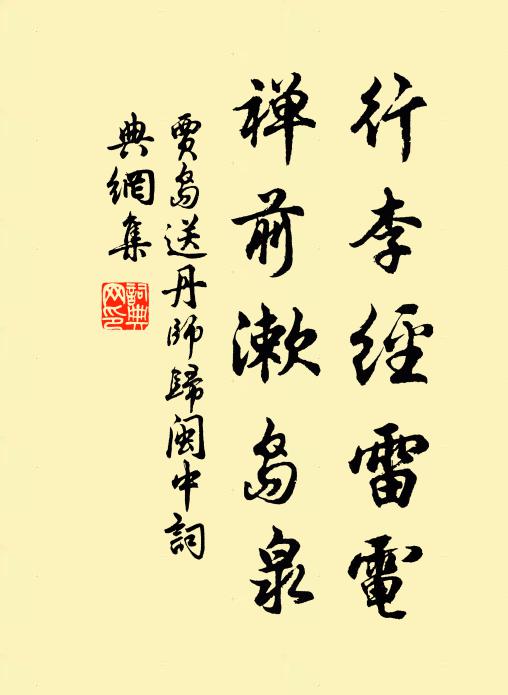 行李經雷電
禅前漱島泉
賈島送丹師歸閩中詞
典網集
詞典
网印